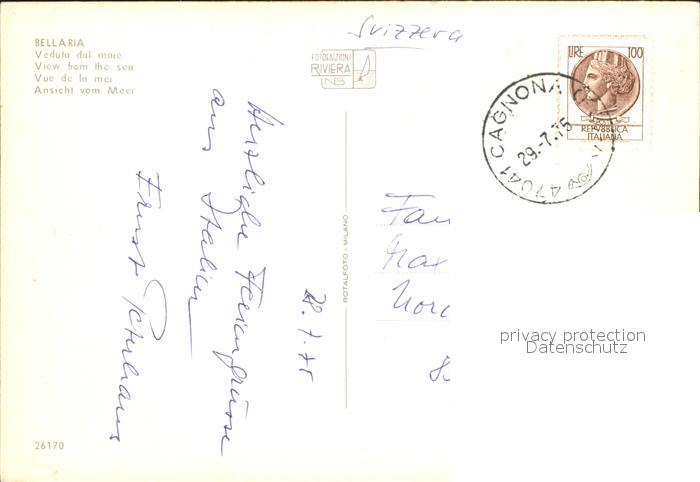 BELLARIA
Veduta dal mare
View from the sea
Vue de la mer
Ansicht vom Meer
Svizzera
FOTOEDIZIONI
RIVIERA
NB
LIRE 100
REPVBBLICA
ITALIANA
47041 CAGNONA
29.-7.75
Herzliche Feriengrüsse
aus Italien
Ernst
28.7.75
ROTALFOTO - MILANO
Fam
Max
privacy protection
Datenschutz
26170